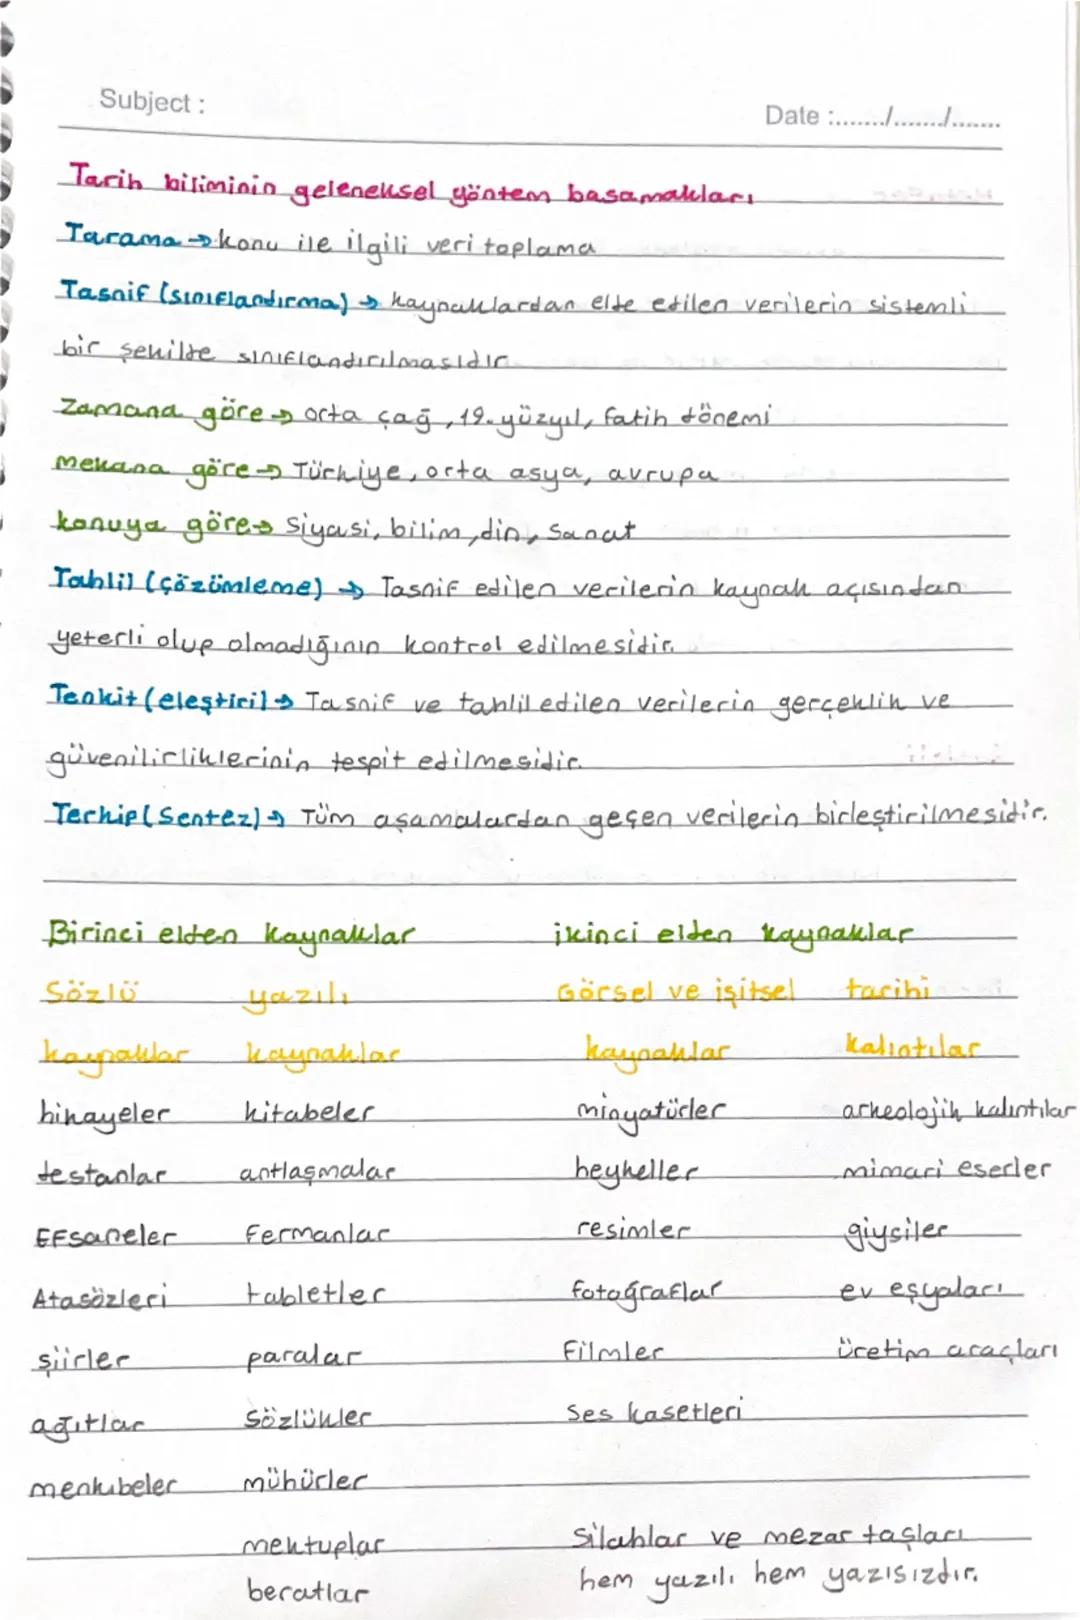 Subject :
Date :......./......./.......
Tarih biliminin geleneksel yöntem basamakları
Tarama → konu ile ilgili veri toplama
Tasnif (sınıflandırma) → kaynaklardan elde edilen verilerin sistemli
bir şekilde sınıflandırılmasıdır.
Zamana göre → orta çağ, 19. yüzyıl, fatih dönemi
mekana göre → Türkiye, orta asya, avrupa
konuya göre → Siyasi, bilim, din, Sanat
Tahlil (çözümleme) → Tasnif edilen verilerin kaynak açısından
yeterli olup olmadığının kontrol edilmesidir.
Tenkit (eleştiri) → Tasnif ve tahlil edilen verilerin gerçeklik ve
güvenilirliklerinin tespit edilmesidir.
Terkip (Sentez) → Tüm aşamalardan geçen verilerin birleştirilmesidir.
Birinci elden kaynaklar ikinci elden kaynaklar
Sözlü yazılı Görsel ve işitsel tarihi
kaynaklar kaynaklar kaynaklar kalıntılar
hikayeler kitabeler minyatürler arkeolojik kalıntılar
destanlar antlaşmalar heykeller mimari eserler
Efsaneler Fermanlar resimler giysiler
Atasözleri tabletler fotoğraflar ev eşyaları
şiirler paralar Filmler üretim araçları
ağıtlar Sözlükler Ses kasetleri
menkıbeler mühürler
mektuplar Silahlar ve mezar taşları
beratlar hem yazılı hem yazısızdır.